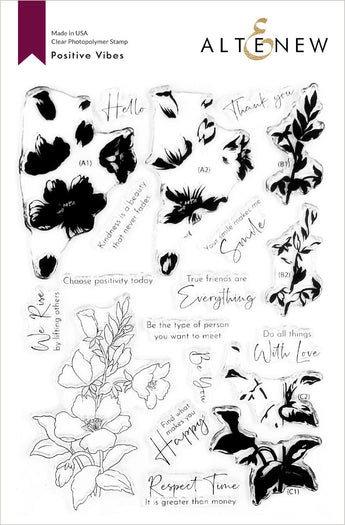 Made in USA
Clear Photopolymer Stamp
Positive Vibes
ALTENEW
Hello
Thank you
(A1)
(A2)
(B1)
Kindness is a beauty
that never fades
Your smile makes me
Smile
(B2)
Choose positivity today
True friends are
Everything
We Rise
by lifting others
Be the type of person
you want to meet
Do all things
With Love
Be You
(C2)
Find what
makes you
Happy
Respect Time
It is greater than money
(C1)